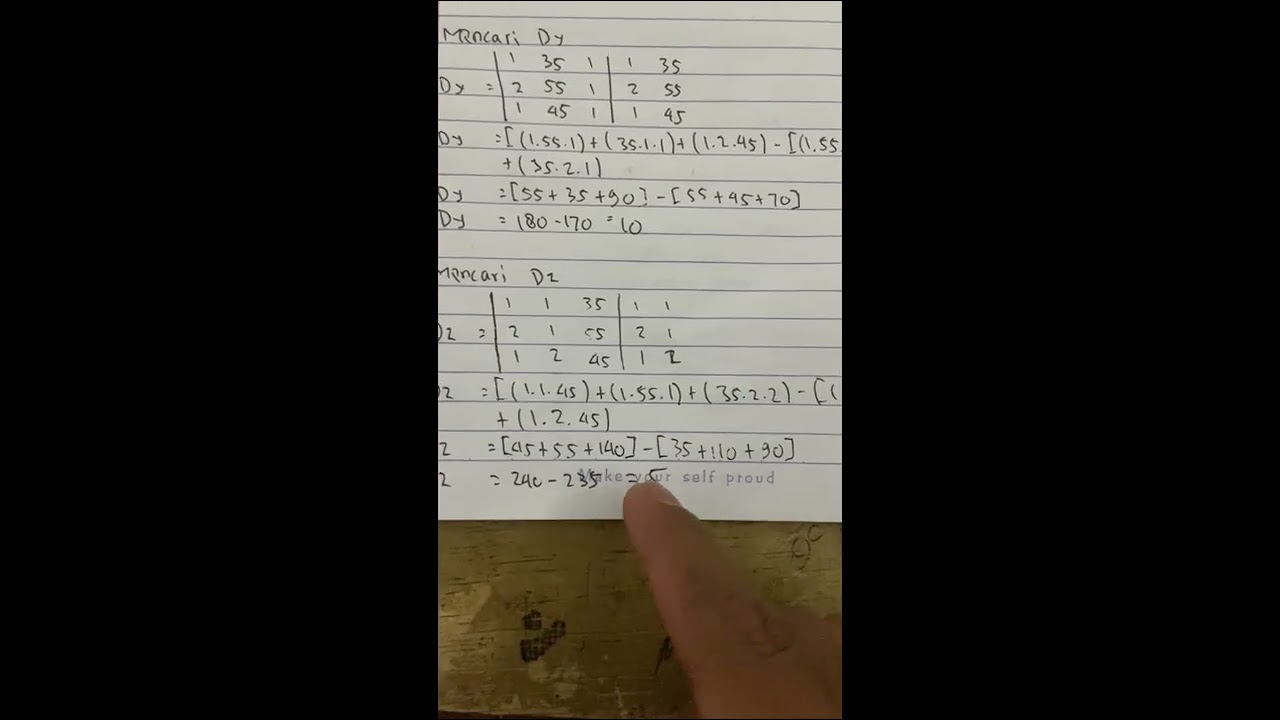 Mencari Dy
1 35 1 1 35
Dy = 2 55 1 2 55
1 45 1 1 45
Dy = [(1.55.1) + (35.1.1) + (1.2.45) - [(1.55
+ (35.2.1)
Dy = [55 + 35 + 90] - [55 + 45 + 70]
Dy = 180 - 170 = 10
Mencari Dz
1 1 35 1 1
Dz = 2 1 55 2 1
1 2 45 1 2
z = [(1.1.45) + (1.55.1) + (35.2.2) - [(
+ (1.2.45)
z = [45 + 55 + 140] - [35 + 110 + 90]
z = 240 - 235 = 5
Make your self proud